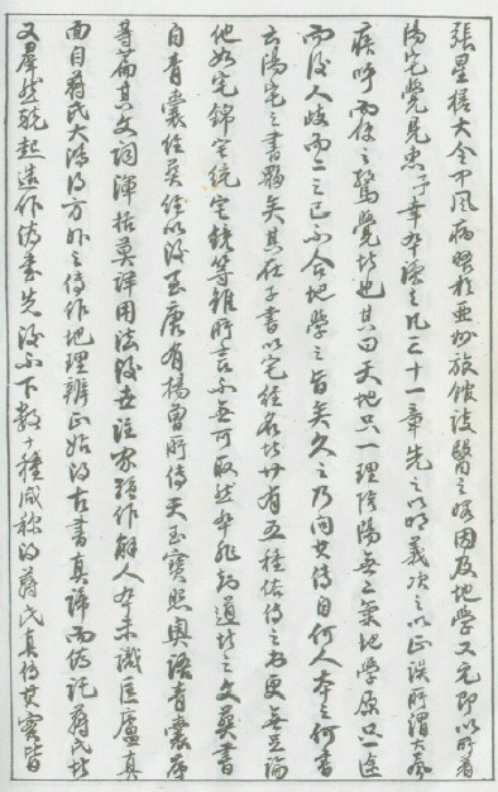 張星槎大令中風病臥於亞州旅館談醫之餘因及地學又元即以所著
陽宅覺見惠予幸卒讀之凡三十一章先之以明義次之以正誤所謂大氣
疾呼而使之驚覺者也其曰天地只一理陰陽無二氣地學原只一途
而後人歧而二之已不合地學之旨矣久之乃問其傳自何人本之何書
云陽宅之書夥矣其在子書以宅經名者廿有五種依傳之為更無足論
他如宅錦宅統宅鏡等雖所言不無可取然本非知道者之文葬書
自青囊經葬經以後至唐有楊曾所傳天玉寶照奧語青囊序
等篇其文詞渾括莫詳用法後世註家強作解人卒未識匡廬真
面自蔣氏大鴻得方外之傳作地理辨正始得古書真諦而偽託蔣氏者
又羣然競起造作偽書先後不下數十種咸稱得蔣氏真傳其實皆